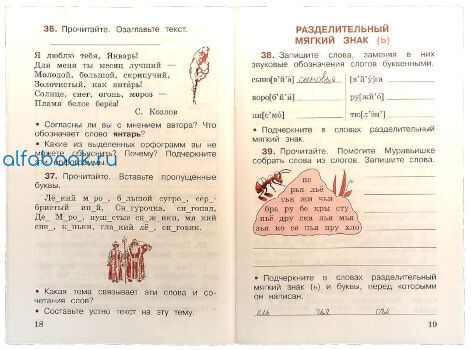 36. Прочитайте. Озаглавьте текст.
Я люблю тебя, Январь!
Для меня ты месяц лучший —
Молодой, большой, скрипучий,
Золотистый, как янтарь!
Солнце, снег, огонь, мороз —
Пламя белое берёз!
С. Козлов
• Согласны ли вы с мнением автора? Что
обозначает слово янтарь?
• Какие из выделенных орфограмм вы не
можете объяснить? Почему? Подчеркните
эти орфограммы.
alfabook.ru
37. Прочитайте. Вставьте пропущенные
буквы.
Лё_кий м_ро_, б_льшой сугро_, сер_
бристый ин_й, Сн_гурочка, сн_гопад,
Де_ М_ро_, пуш_стые сн_ж_нки, мя_кий
сне_, к_ньки, гла_кий лё_, сн_говик.
• Какая тема связывает эти слова и со-
четания слов?
• Составьте устно текст на эту тему.
18
РАЗДЕЛИТЕЛЬНЫЙ
МЯГКИЙ ЗНАК (Ь)
38. Запишите слова, заменяя в них
звуковые обозначения слогов буквенными.
сыно[в'й'а] сыновья [в'й'у]га
воро[б'й'и] ру[жй'о]
пи[с'мо] тю[л'эн']
• Подчеркните в словах разделительный
мягкий знак.
39. Прочитайте. Помогите Муравьишке
собрать слова из слогов. Запишите слова.
пе
рья льё
тья жи чьи
бра ру бе кры сту
пьё дру ска лья мья
зья ко се пья пру хло
• Подчеркните в словах разделительный
мягкий знак (ь) и буквы, перед которыми
он написан.
19